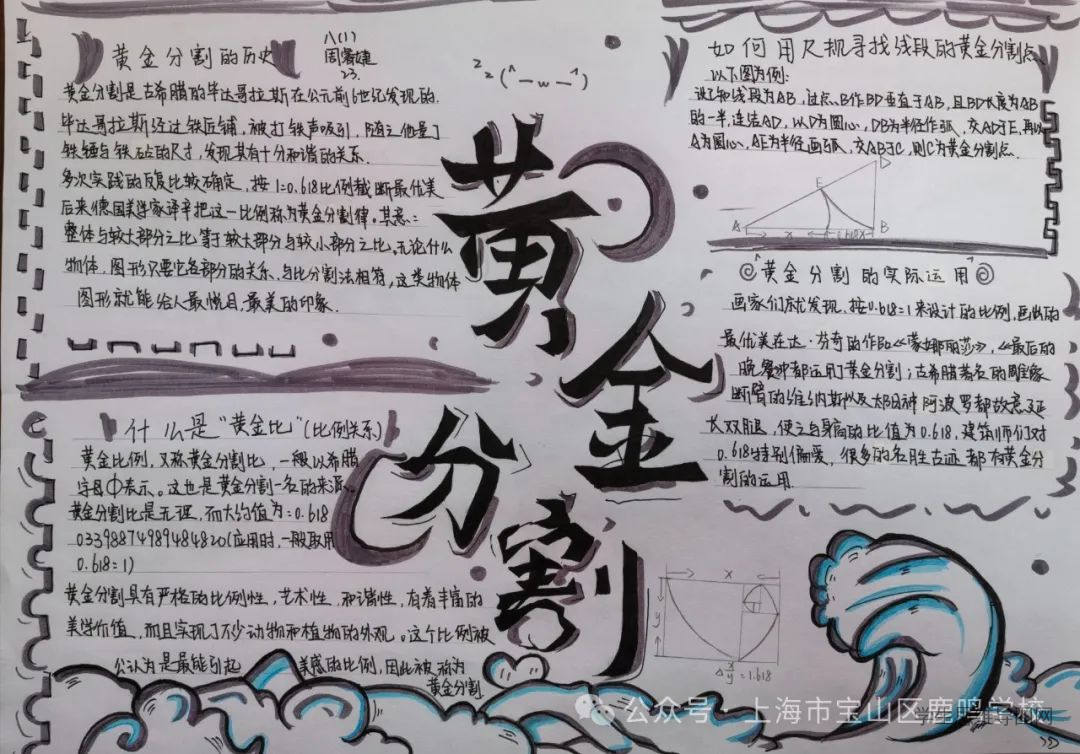 黄金分割的历史
八(1)
23.
黄金分割是古希腊的毕达哥拉斯在公元前6世纪发现的.
毕达哥拉斯经过铁匠铺，被打铁声吸引，随之他量了
铁锤与铁砧的尺寸，发现其有十分和谐的关系.
多次实践的反复比较确定，按1:0.618比例截断最优美
后来德国美学家泽辛把这一比例称为黄金分割律。其意:
整体与较大部分之比等于较大部分与较小部分之比，无论什么
物体、图形只要它各部分的关系、与比分割法相符，这类物体
图形就能给人最悦目、最美的印象.
什么是“黄金比”(比例关系)
黄金比例，又称黄金分割比，一般以希腊
字母Φ表示。这也是黄金分割一名的来源.
黄金分割比是无理，而大约值为:0.618
03398874989484820(应用时,一般取用
0.618:1)
黄金分割具有严格的比例性，艺术性、和谐性，有着丰富的
美学价值，而且实现了不少动物和植物的外观。这个比例被
公认为是最能引起 美感的比例，因此被称为
黄金分割
黄
金
分
割
如何用尺规寻找线段的黄金分割点
以下图为例:
设已知线段为AB，过点B作BD垂直于AB，且BD长度为AB
的一半，连结AD，以D为圆心，DB为半径作弧，交AD于E，再以
A为圆心，AE为半径画弧，交AB于C，则C为黄金分割点.
D
E
A
B
x
0.618x
黄金分割的实际运用
画家们就发现，按0.618:1来设计的比例，画出的
最优美在达·芬奇的作品《蒙娜丽莎》，《最后的
晚餐》中都运用了黄金分割；古希腊著名的雕像
断臂的维纳斯以及太阳神阿波罗都故意延
长双腿，使之与身高的比值为0.618，建筑师们对
0.618特别偏爱，很多的名胜古迹都有黄金分
割的运用
x
y
x/y=1.618
公众号 · 上海市宝山区鹿鸣学校